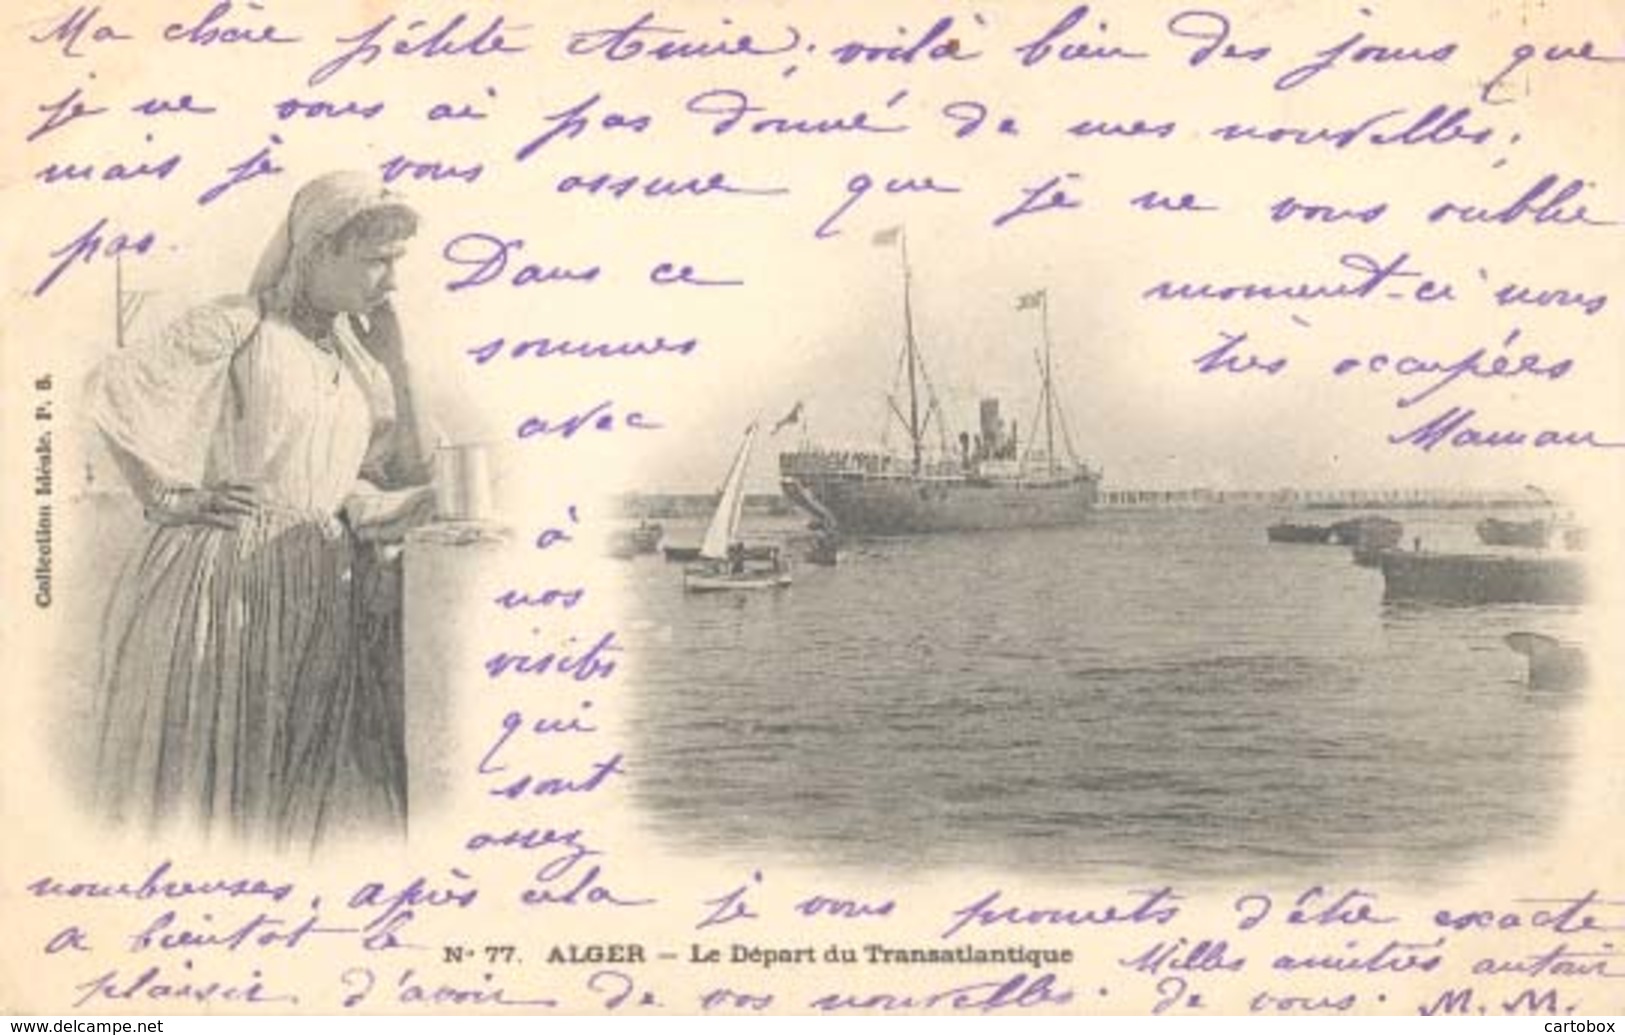 Ma chère pétite Amie, voilà bien des jours que
je ne vous ai pas donné de mes nouvelles,
mais je vous assure que je ne vous oublie
pas. Dans ce moment-ci nous
sommes très occupées
avec Maman
à
nos
visites
qui
sont
assez
nombreuses, après cela je vous promets d'être exacte
a bientot le
plaisir d'avoir de vos nouvelles.
Milles amitiés autour
de vous. M. M.
Collection Idéale. P. S.
No 77. ALGER — Le Départ du Transatlantique
www.delcampe.net
cartobox